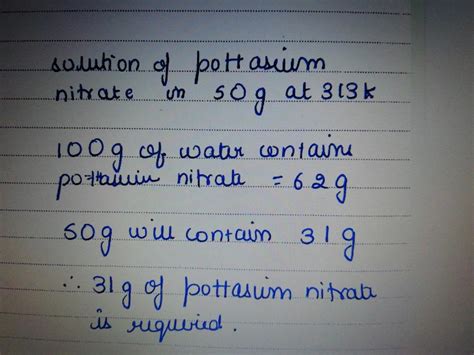 solution of pottasium
nitrate in 50g at 313k
100g of water contains
pottasium nitrate = 62g
50g will contain 31g
∴ 31g of pottasium nitrate
is required.